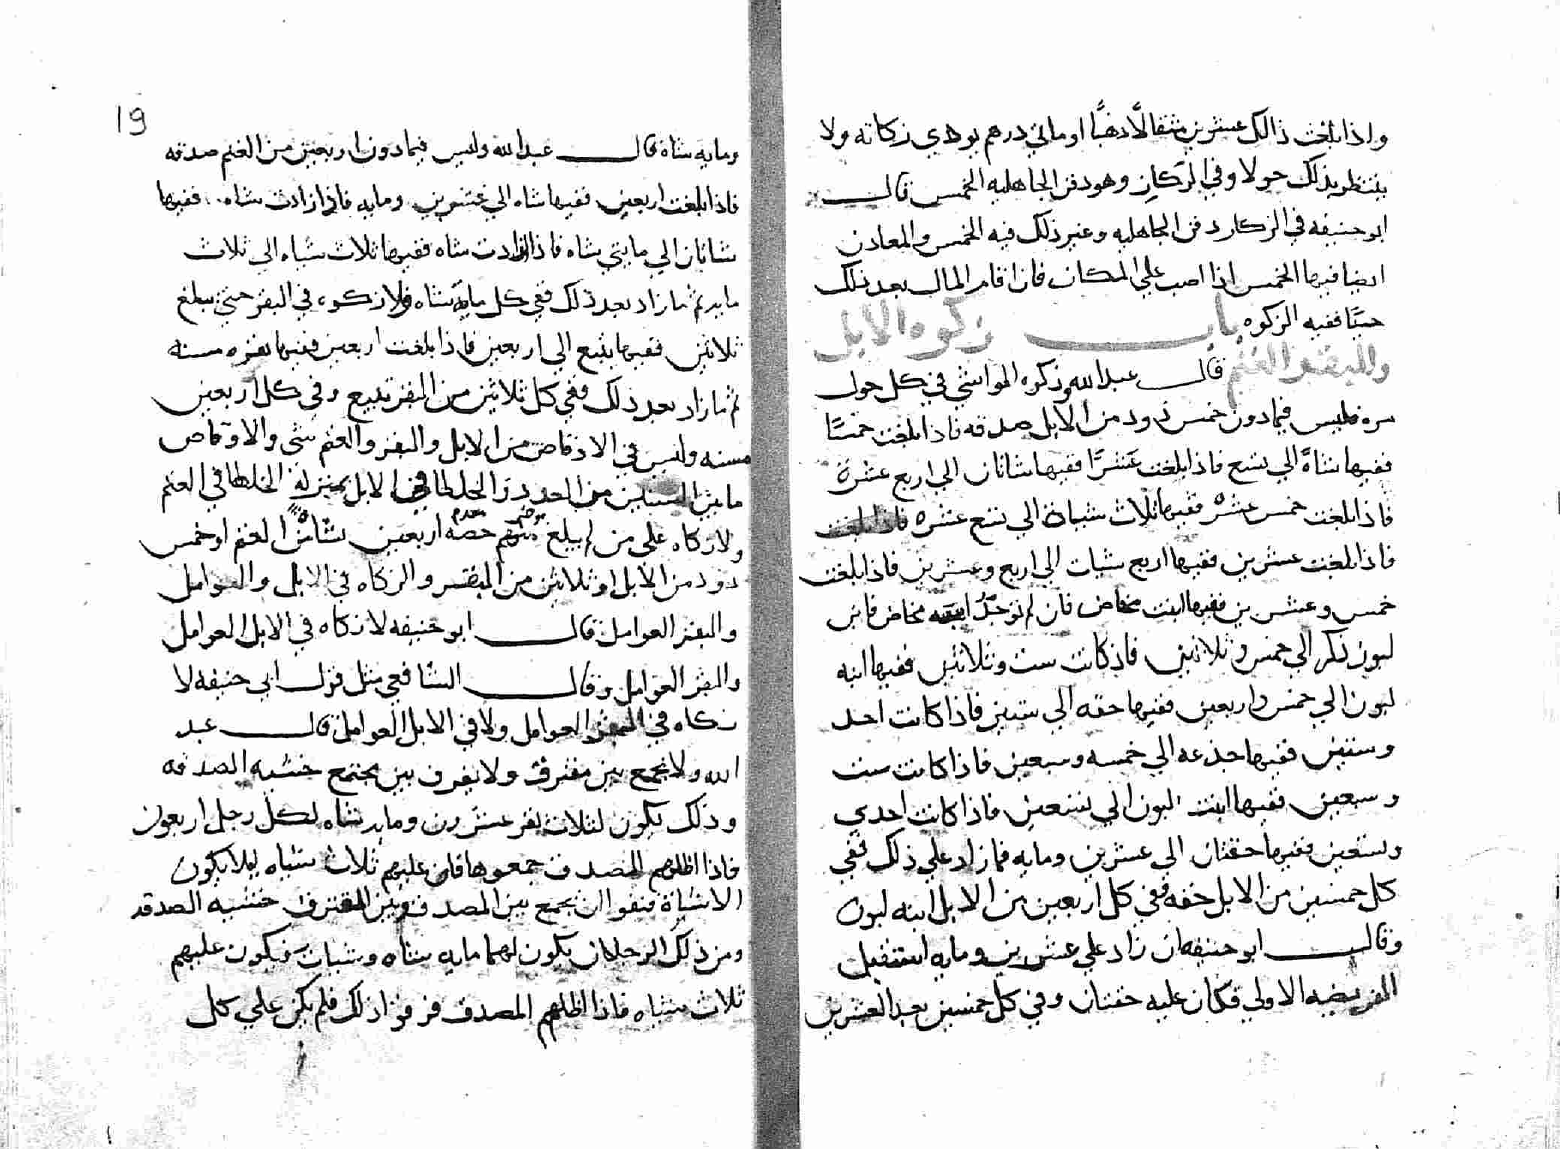 واذا بلغت ذالك عشرين مثقالا ذهبا او ماتي درهم يودي زكاته ولا
ينتظر بذلك حولا وفي الركاز وهو دفن الجاهليه الخمس قال
ابو حنيفه في الركاز دفن الجاهليه وغير ذلك فيه الخمس والمعادن
ايضا فيها الخمس اذا اصب علي المكان فان اقام المال بعد ذلك
ففيه الزكوه باب زكوه الابل
والبقر والغنم قال عبدالله وزكوه المواشي في كل حول
مره فليس فيما دون خمس ذود من الابل صدقه فاذا بلغت خمسا
ففيها شاة الي تسع فاذا بلغت عشرا ففيها شاتان الي اربع عشرة
فاذا بلغت خمس عشره ففيها ثلاث شياة الي تسع عشره فاذا بلغت
فاذا بلغت عشرين ففيها اربع شيات الي اربع وعشرين فاذا بلغت
خمس وعشرين ففيها ابنت مخاض فان لم توجد ابنه مخاض فابن
لبون ذكر الي خمس وثلاثين فاذ كانت ست وثلاثين ففيها ابنه
لبون الي خمس واربعين ففيها حقه الي ستين فاذا كانت احد
وستين ففيها جذعه الي خمسه وسبعين فاذا كانت ست
وسبعين ففيها ابنت البون الي تسعين فاذا كانت احدي
وتسعين ففيها حقتان الي عشرين ومايه فما زاد علي ذلك ففي
كل خمسين من الابل حقه ففي كل اربعين من الابل ابنه لبون
وقال ابو حنيفه ان زاد علي عشرين ومايه استقبل
الفريضه الاولي فكان عليه حقتان وفي كل خمسين بعد العشرين
19
ومايه شاه قال عبدالله وليس فيما دون اربعين من الغنم صدقه
فاذا بلغت اربعين ففيها شاه الي عشرين ومايه فاذا زادت شاه ففيها
شاتان الي مايتي شاه فاذا زادت شاه ففيها ثلاث شياه الي ثلاث
مايه ثم ما زاد بعد ذلك ففي كل مايه شاه ولا زكوه في البقر حتي يبلغ
ثلاثين ففيها تبيع الي اربعين فاذا بلغت اربعين ففيها بقره مسنه
ثم ما زاد بعد ذلك ففي كل ثلاثين من البقر تبيع وفي كل اربعين
مسنه وليس في الاوقاص من الابل والبقر والغنم شي والاوقاص
ما بين السنين من العدد والخلطا في الابل بمنزلة الخلطا في الغنم
ولا زكاه علي من لم يبلغ حصه اربعين شاة من الغنم او خمس
ذود من الابل او ثلاثين من البقر والزكاه في الابل والعوامل
والبقر العوامل قال ابو حنيفه لا زكاه في الابل العوامل
والبقر العوامل وقال الشافعي مثل قول ابي حنيفه لا
زكاه في البقر العوامل ولا في الابل العوامل قال عبد
الله ولا يجمع بين مفترق ولا يفرق بين مجتمع خشيه الصدقه
وذلك يكون لثلاث نفر عشرون ومايه شاه لكل رجل اربعون
فاذا اظلهم المصدق جمعوها فان عليهم ثلاث شياه ليلا يكون
الا شاة فنهوا ان يجمع بين المصدق وبين المفترق خشيه الصدقه
ومن ذلك الرجلان يكون لهما مايه شاه وشياه فيكون عليهم
ثلاث شياه فاذا اظلهم المصدق فرقوا ذلك فلم يكن علي كل